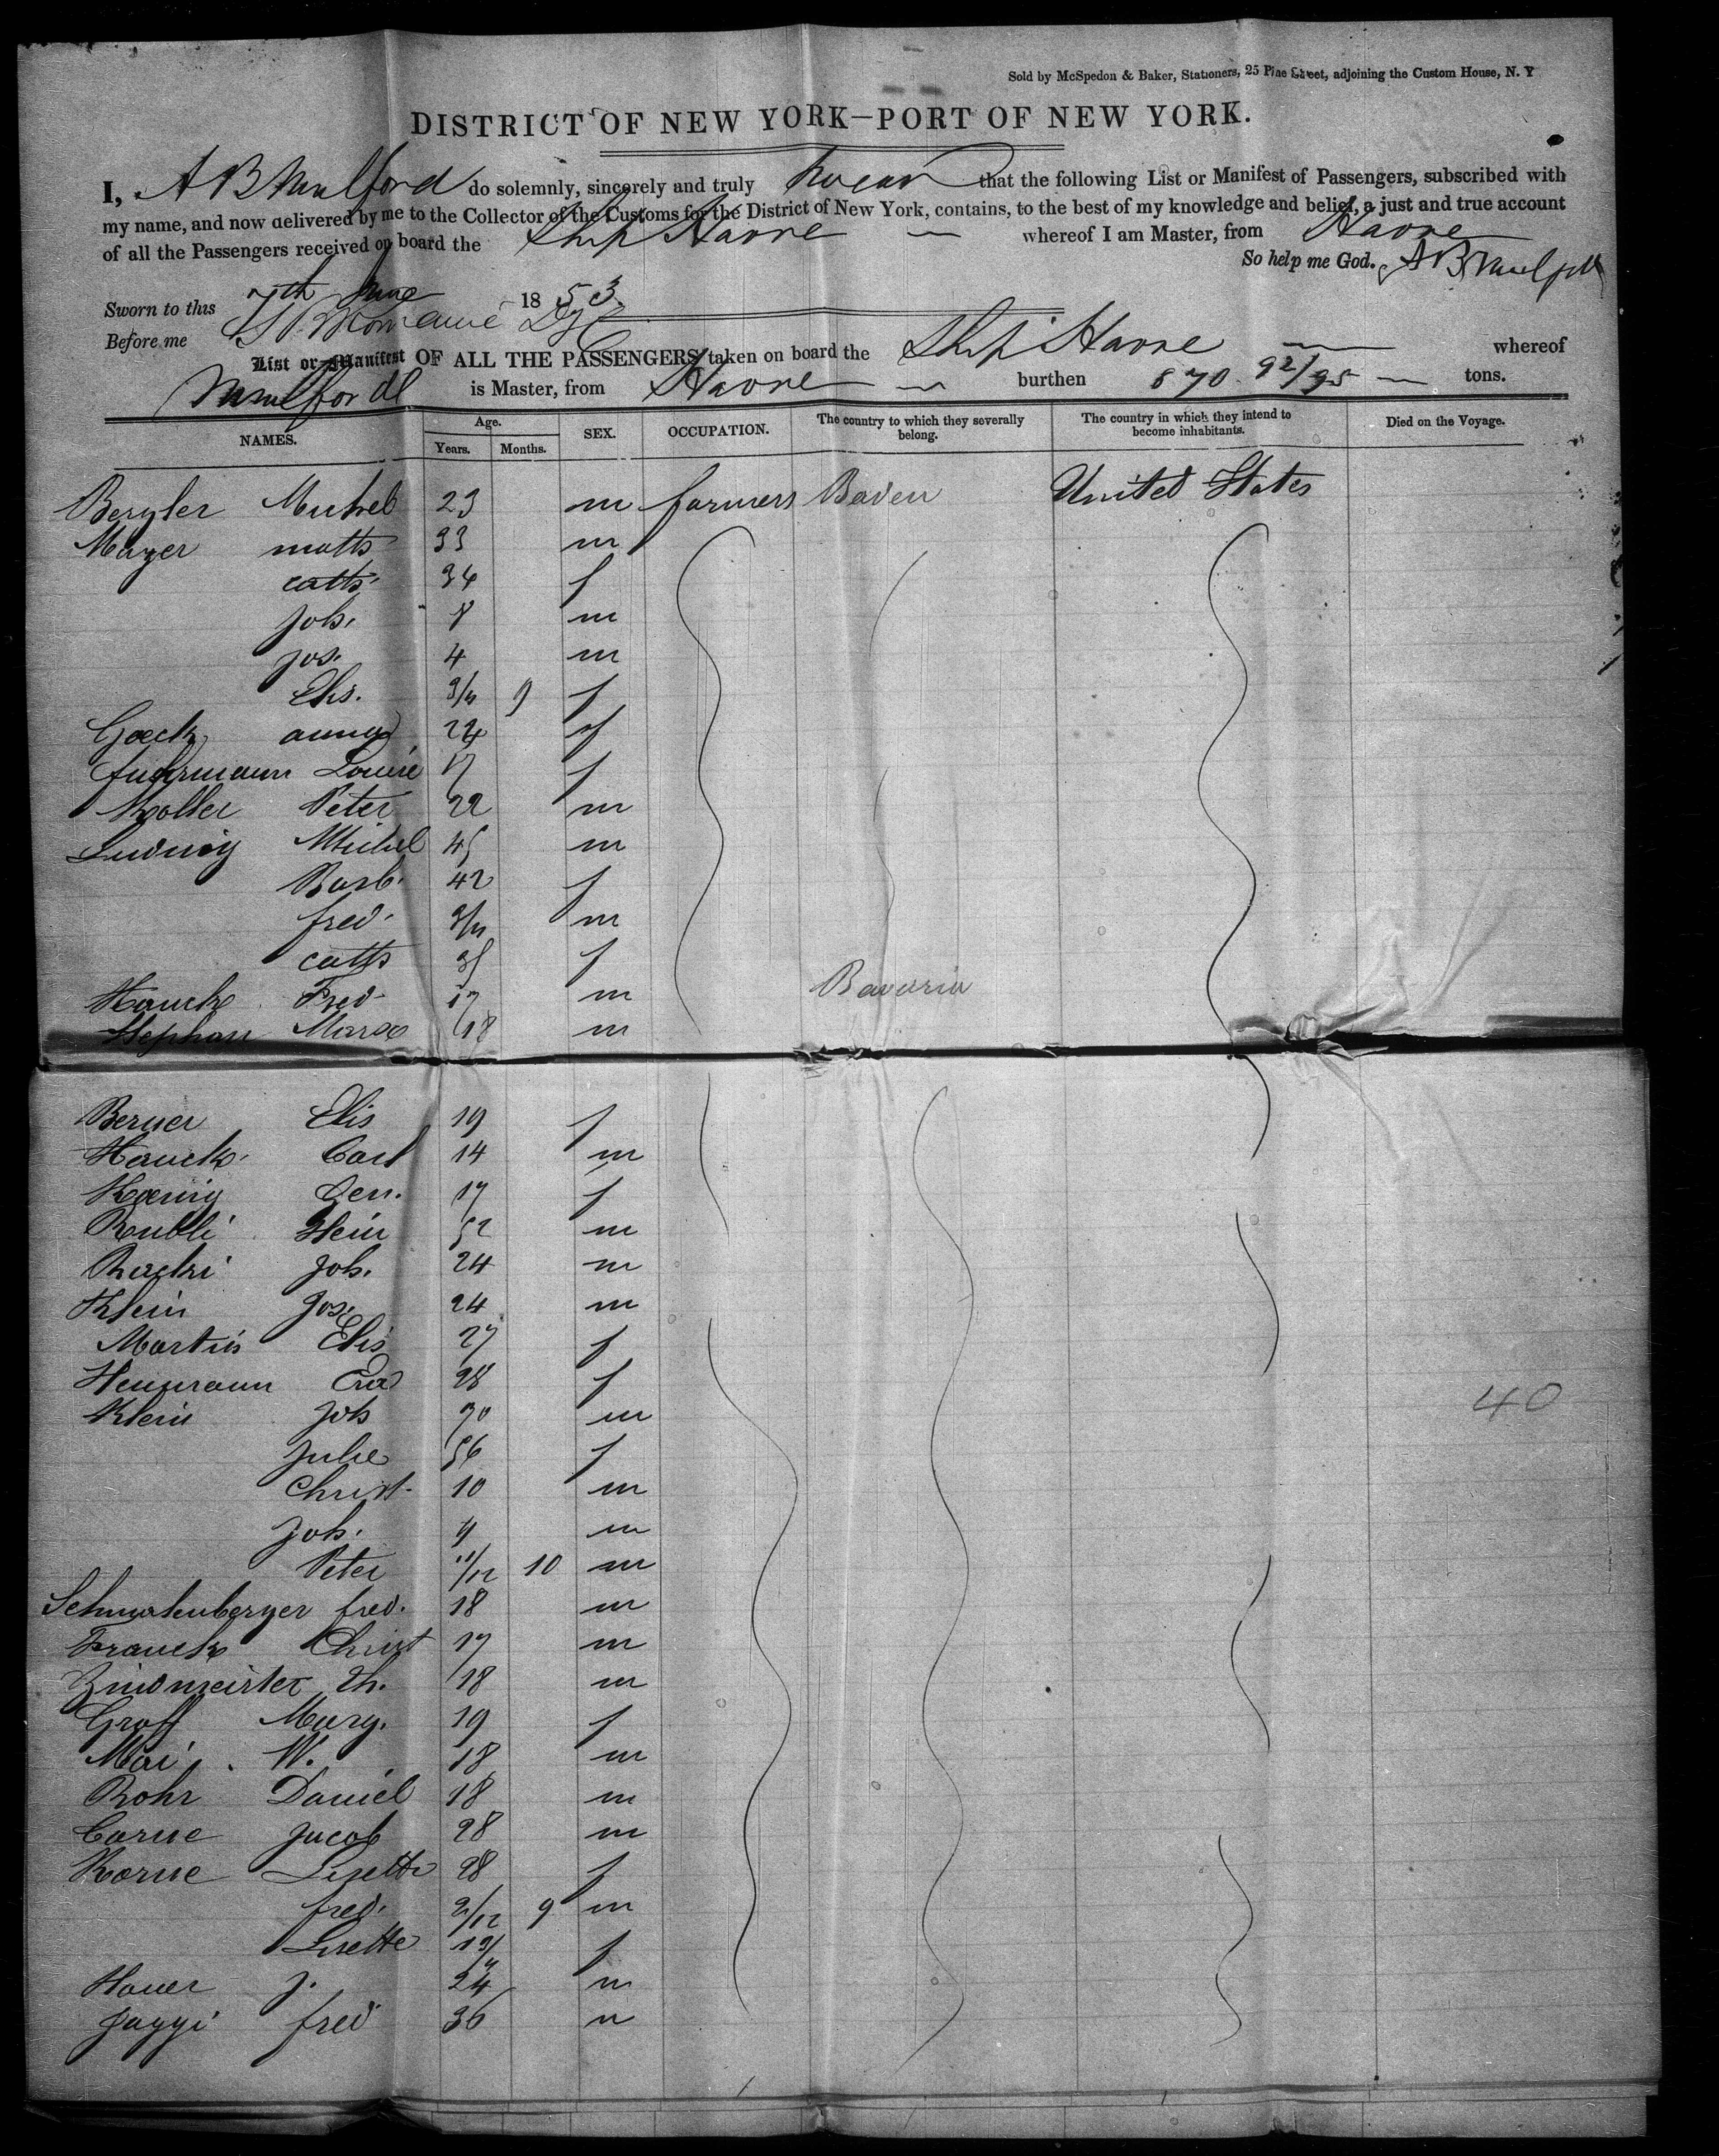 Sold by McSpedon & Baker, Stationers, 25 Pine Street, adjoining the Custom House, N. Y
DISTRICT OF NEW YORK—PORT OF NEW YORK.
I, A B Mulford do solemnly, sincerely and truly swear that the following List or Manifest of Passengers, subscribed with
my name, and now delivered by me to the Collector of the Customs for the District of New York, contains, to the best of my knowledge and belief, a just and true account
of all the Passengers received on board the Ship Havre whereof I am Master, from Havre
So help me God. A B Mulford
Sworn to this 7th June 1853
Before me
List or Manifest OF ALL THE PASSENGERS taken on board the Ship Havre whereof
Mulford is Master, from Havre burthen 870 92/95 tons.
NAMES. Age. Years. Months. SEX. OCCUPATION. The country to which they severally belong. The country in which they intend to become inhabitants. Died on the Voyage.
Bergler Michel 23 m farmers Baden United States
Mayer matts 33 m
cath 34 f
joh. 8 m
jos. 4 m
Elis. 9 f
Goeck anna 24 f
fuhrmann Louise 17 f
Peter 22 m
Ludwig Michel 45 m
Barb. 42 f
fred. m
cath f
Hauck Fred 17 m Bavaria
Stephan Marx 18 m
Berner Elis 19 f
Hauck Carl 14 m
Koenig Gen. 17 f
Rubli Hein 52 m
joh. 24 m
Klein Jos. 24 m
Martin Elis 27 f
Heumann Eva 28 f
Klein joh 30 m
julie 36 f
Christ. 10 m
joh. m
Peter 11/12 10 m
fred. 18 m
Franck Christ 17 m
Zindmeister Th. 18 m
Graff Marg. 19 f
Mai W. 18 m
Rohr Daniel 18 m
Corne jacob 28 m
Korne Lisette 28 f
fred. 9 m
Lisette f
Hauer j. 24 m
jaggi fred 36 m
40